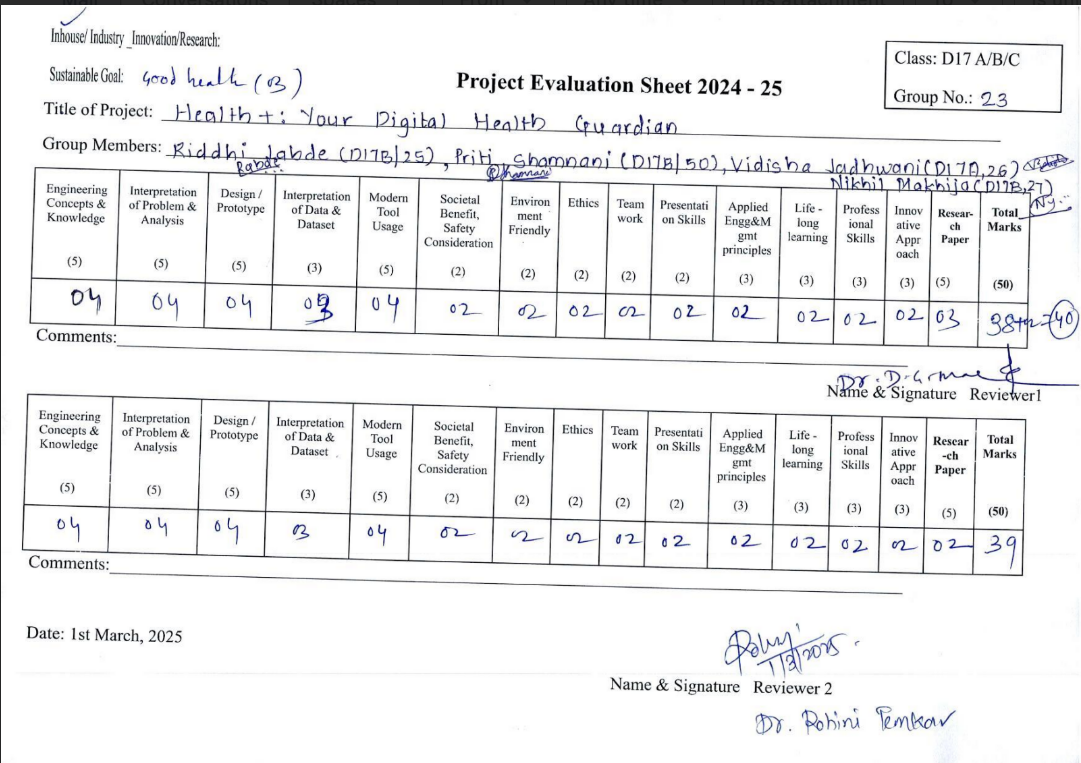 Inhouse/ Industry_Innovation/Research:
Sustainable Goal: Good health (03)
Project Evaluation Sheet 2024 - 25
Class: D17 A/B/C
Group No.: 23
Title of Project: Health+: Your Digital Health Guardian
Group Members: Riddhi Jabde (D17B/25), Priti Shamnani (D17B/50), Vidisha Jadhwani (D17A,26)
Nikhil Makhija (D17B,27)
Engineering Concepts & Knowledge (5) Interpretation of Problem & Analysis (5) Design / Prototype (5) Interpretation of Data & Dataset (3) Modern Tool Usage (5) Societal Benefit, Safety Consideration (2) Environ ment Friendly (2) Ethics (2) Team work (2) Presentati on Skills (2) Applied Engg&M gmt principles (3) Life - long learning (3) Profess ional Skills (3) Innov ative Appr oach (3) Resear- ch Paper (5) Total Marks (50)
04 04 04 03 04 02 02 02 02 02 02 02 02 02 03 38+2=40
Comments:
Name & Signature Reviewer1
Engineering Concepts & Knowledge (5) Interpretation of Problem & Analysis (5) Design / Prototype (5) Interpretation of Data & Dataset (3) Modern Tool Usage (5) Societal Benefit, Safety Consideration (2) Environ ment Friendly (2) Ethics (2) Team work (2) Presentati on Skills (2) Applied Engg&M gmt principles (3) Life - long learning (3) Profess ional Skills (3) Innov ative Appr oach (3) Resear -ch Paper (5) Total Marks (50)
04 04 04 03 04 02 02 02 02 02 02 02 02 02 02 39
Comments:
Date: 1st March, 2025
1/3/2025
Name & Signature Reviewer 2
Dr. Rohini Temkar